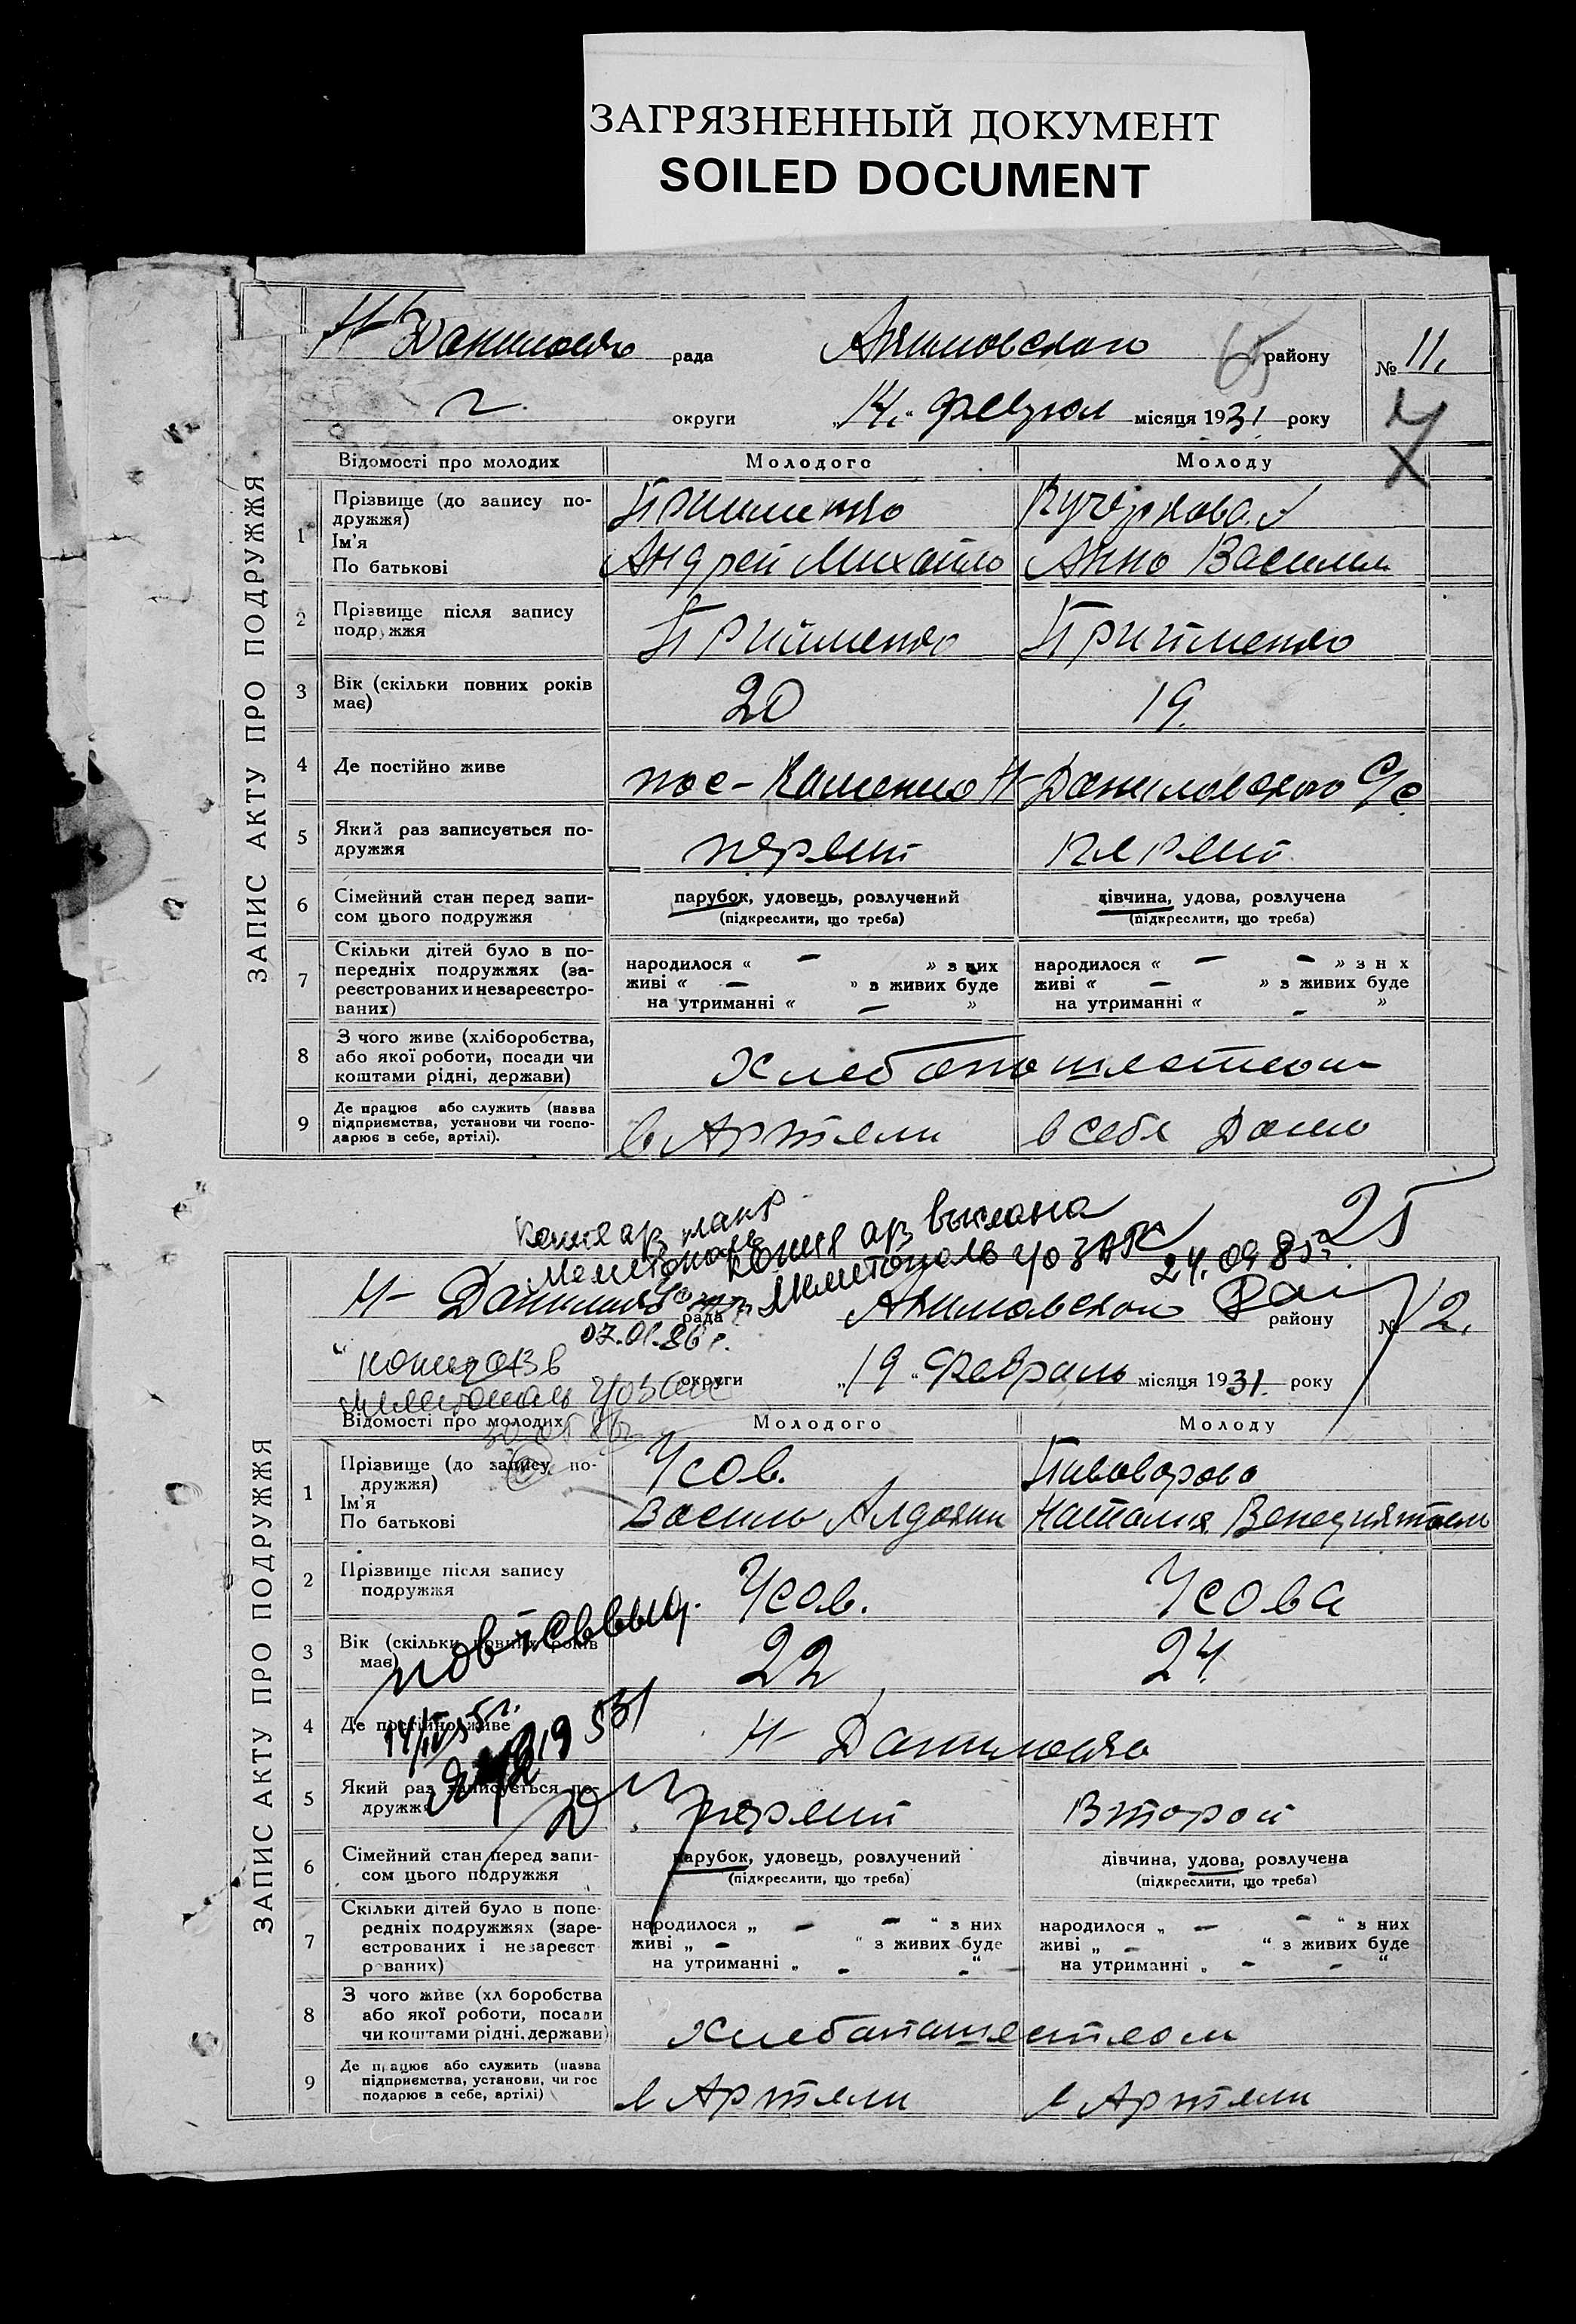 ЗАГРЯЗНЕННЫЙ ДОКУМЕНТ
SOILED DOCUMENT
ЗАПИС АКТУ ПРО ПОДРУЖЖЯ
Н-Даниловка рада Акимовского району № 11.
округи „14.“ місяця 1931 року
Відомості про молодих Молодого Молоду
1 Прізвище (до запису по-
дружжя)
Ім'я
По батькові
Андрей Михайло Анна Васильи
2 Прізвище після запису
подружжя
Прийменко Прийменко
3 Вік (скільки повних років
має)
20 19.
4 Де постійно живе
пос-Каменка Н-Даниловского С/с
5 Який раз записується по-
дружжя
первый первый
6 Сімейний стан перед запи-
сом цього подружжя
парубок, удовець, розлучений
(підкреслити, що треба)
дівчина, удова, розлучена
(підкреслити, що треба)
7 Скільки дітей було в по-
передніх подружжях (за-
реєстрованих и незареєстро-
ваних)
народилося « — » з них
живі « — » з живих буде
на утриманні « — »
народилося « — — » з н х
живі « — » з живих буде
на утриманні « — »
8 З чого живе (хліборобства,
або якої роботи, посади чи
коштами рідні, держави)
9 Де працює або служить (назва
підприємства, установи чи госпо-
дарює в себе, артілі).
в Артели в себя Дома
копия аз выслана
Мелитополь ЧОЗАГС 24.09.85г. 25
ЗАПИС АКТУ ПРО ПОДРУЖЖЯ
рада Акимовского Рай району № 12.
07.01.86г.
округи „19“ Февраль місяця 1931. року
Відомості про молодих Молодого Молоду
1 Прізвище (до запису по-
дружжя)
Ім'я
По батькові
Усов. Пивоварова
Василь Наталия
2 Прізвище після запису
подружжя
Усов. Усова
3 Вік (скільки повних років
має)
22 24.
4 Де постійно живе
Н- Даниловка
5 Який раз записується по-
дружжя
первый Второй
6 Сімейний стан перед запи-
сом цього подружжя
парубок, удовець, розлучений
(підкреслити, що треба)
дівчина, удова, розлучена
(підкреслити, що треба)
7 Скільки дітей було в попе-
редніх подружжях (заре-
єстрованих і незареєст
рованих)
народилося „ — — “ з них
живі „ — “ з живих буде
на утриманні „ — — “
народилося „ — — “ з них
живі „ — “ з живих буде
на утриманні „ — — “
8 З чого живе (хл боробства
або якої роботи, посади
чи коштами рідні, держави)
9 Де працює або служить (назва
підприємства, установи, чи гос
подарює в себе, артілі)
в Артели в Артели